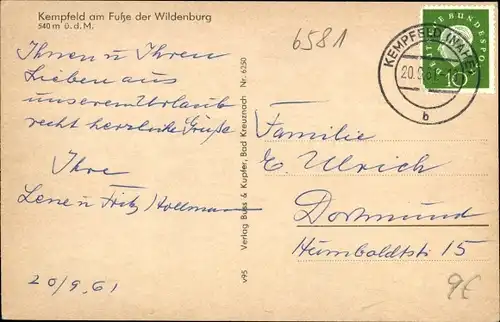 Kempfeld am Fuße der Wildenburg
540 m ü. d. M.
Ihnen u Ihren
Lieben aus
unserem Urlaub
recht herzliche Grüße
Ihre
Lene u Fritz Hollmann
20/9.61
v95 Verlag Buss & Kupfer, Bad Kreuznach Nr. 6250
6581
KEMPFELD
20.9.61
b
DEUTSCHE BUNDESPOST
10
Familie
E. Ulrich
Dortmund
Humboldtstr 15
9€